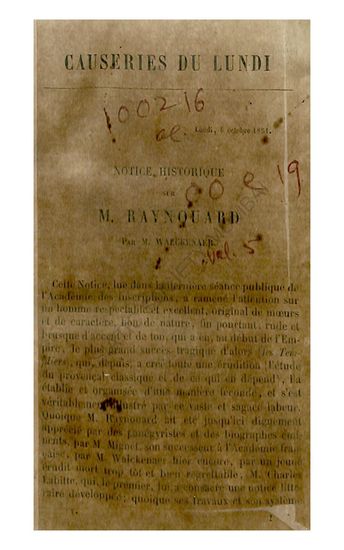 CAUSERIES DU LUNDI
100216
Lundi, 6 octobre 1851.
NOTICE HISTORIQUE
SUR
00819
M. RAYNOUARD
PAR M. WALCKENAER.
Vol. 5
Cette Notice, lue dans la dernière séance publique de
l'Académie des Inscriptions, a ramené l'attention sur
un homme respectable et excellent, original de mœurs
et de caractère, bon de nature, fin pourtant, rude et
brusque d'accent et de ton, qui a eu, au début de l'Em-
pire, le plus grand succès tragique d'alors (les Tem-
pliers), qui, depuis, a créé toute une érudition, l'étude
du provençal classique et de ce qui en dépend, l'a
établie et organisée d'une manière féconde, et s'est
véritablement illustré par ce vaste et sagace labeur.
Quoique M. Raynouard ait été jusqu'ici dignement
apprécié par des panégyristes et des biographes émi-
nents, par M. Mignet, son successeur à l'Académie fran-
çaise, par M. Walckenaer hier encore, par un jeune
érudit mort trop tôt et bien regrettable, M. Charles
Labitte, qui, le premier, lui a consacré une notice litté-
raire développée; quoique ses travaux et son système
v.
1